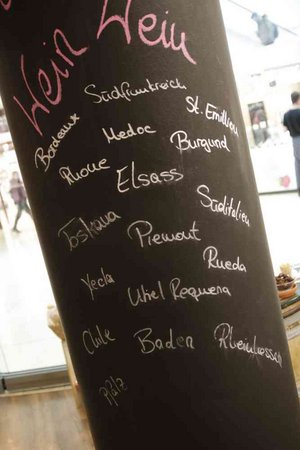 Wein Wein
Südfrankreich
Bordeaux
Medoc
St. Emillion
Rhone
Burgund
Elsass
Süditalien
Toskana
Piemont
Rueda
Yecla
Utiel Requena
Chile
Baden
Rheinhessen
Pfalz